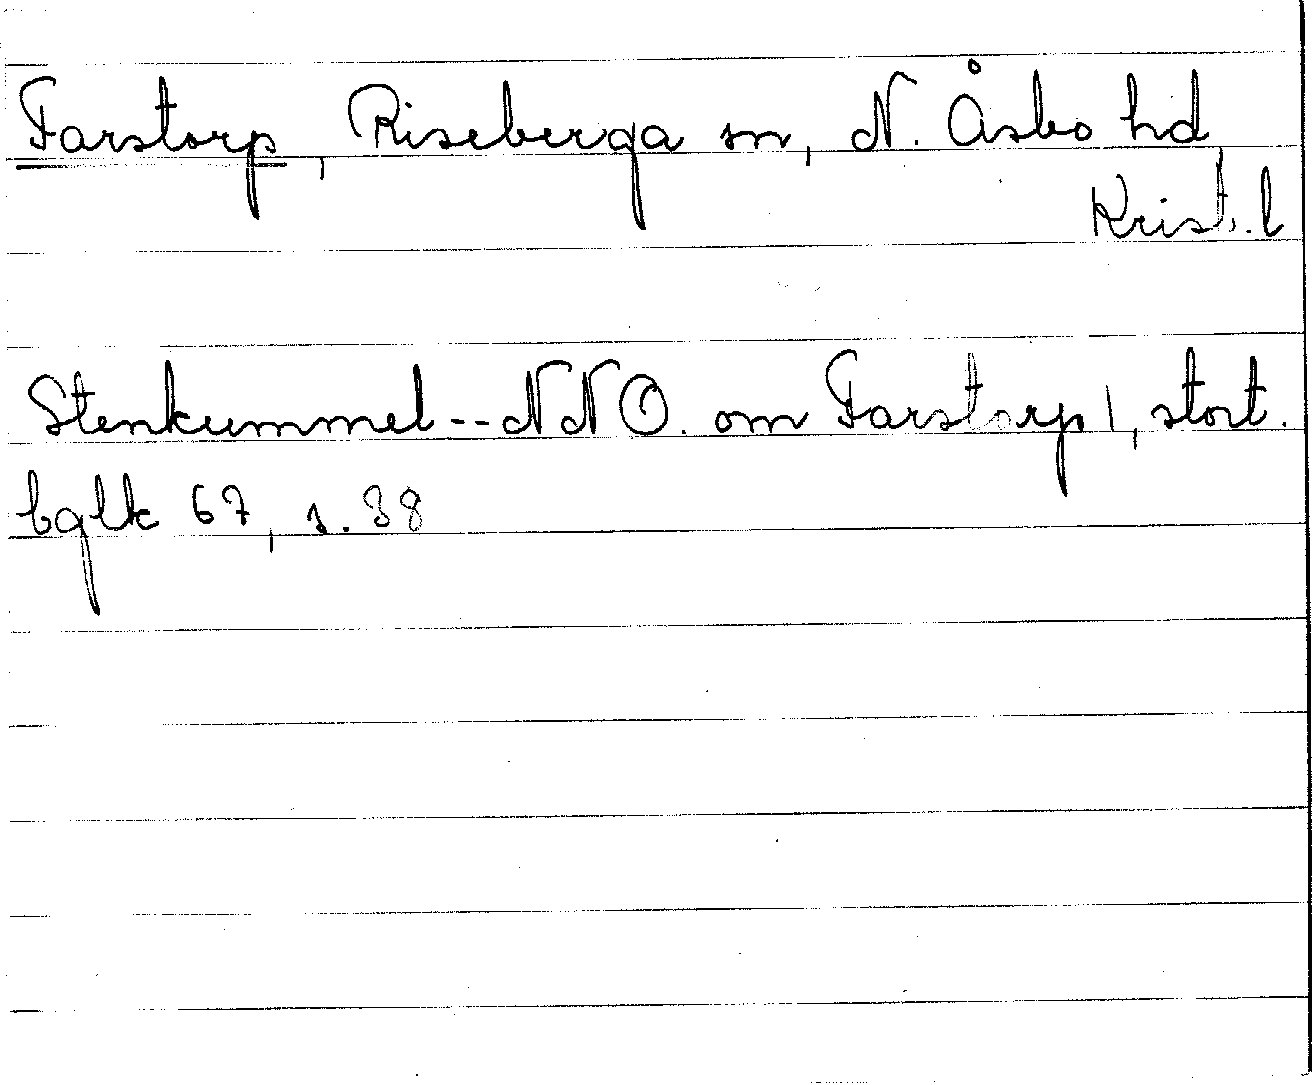 Farstorp, Riseberga sn, N. Åsbo hd
Krist. l
Stenkummel--NNO. om Farstorp 1, stort.
bglk 67, s. 38